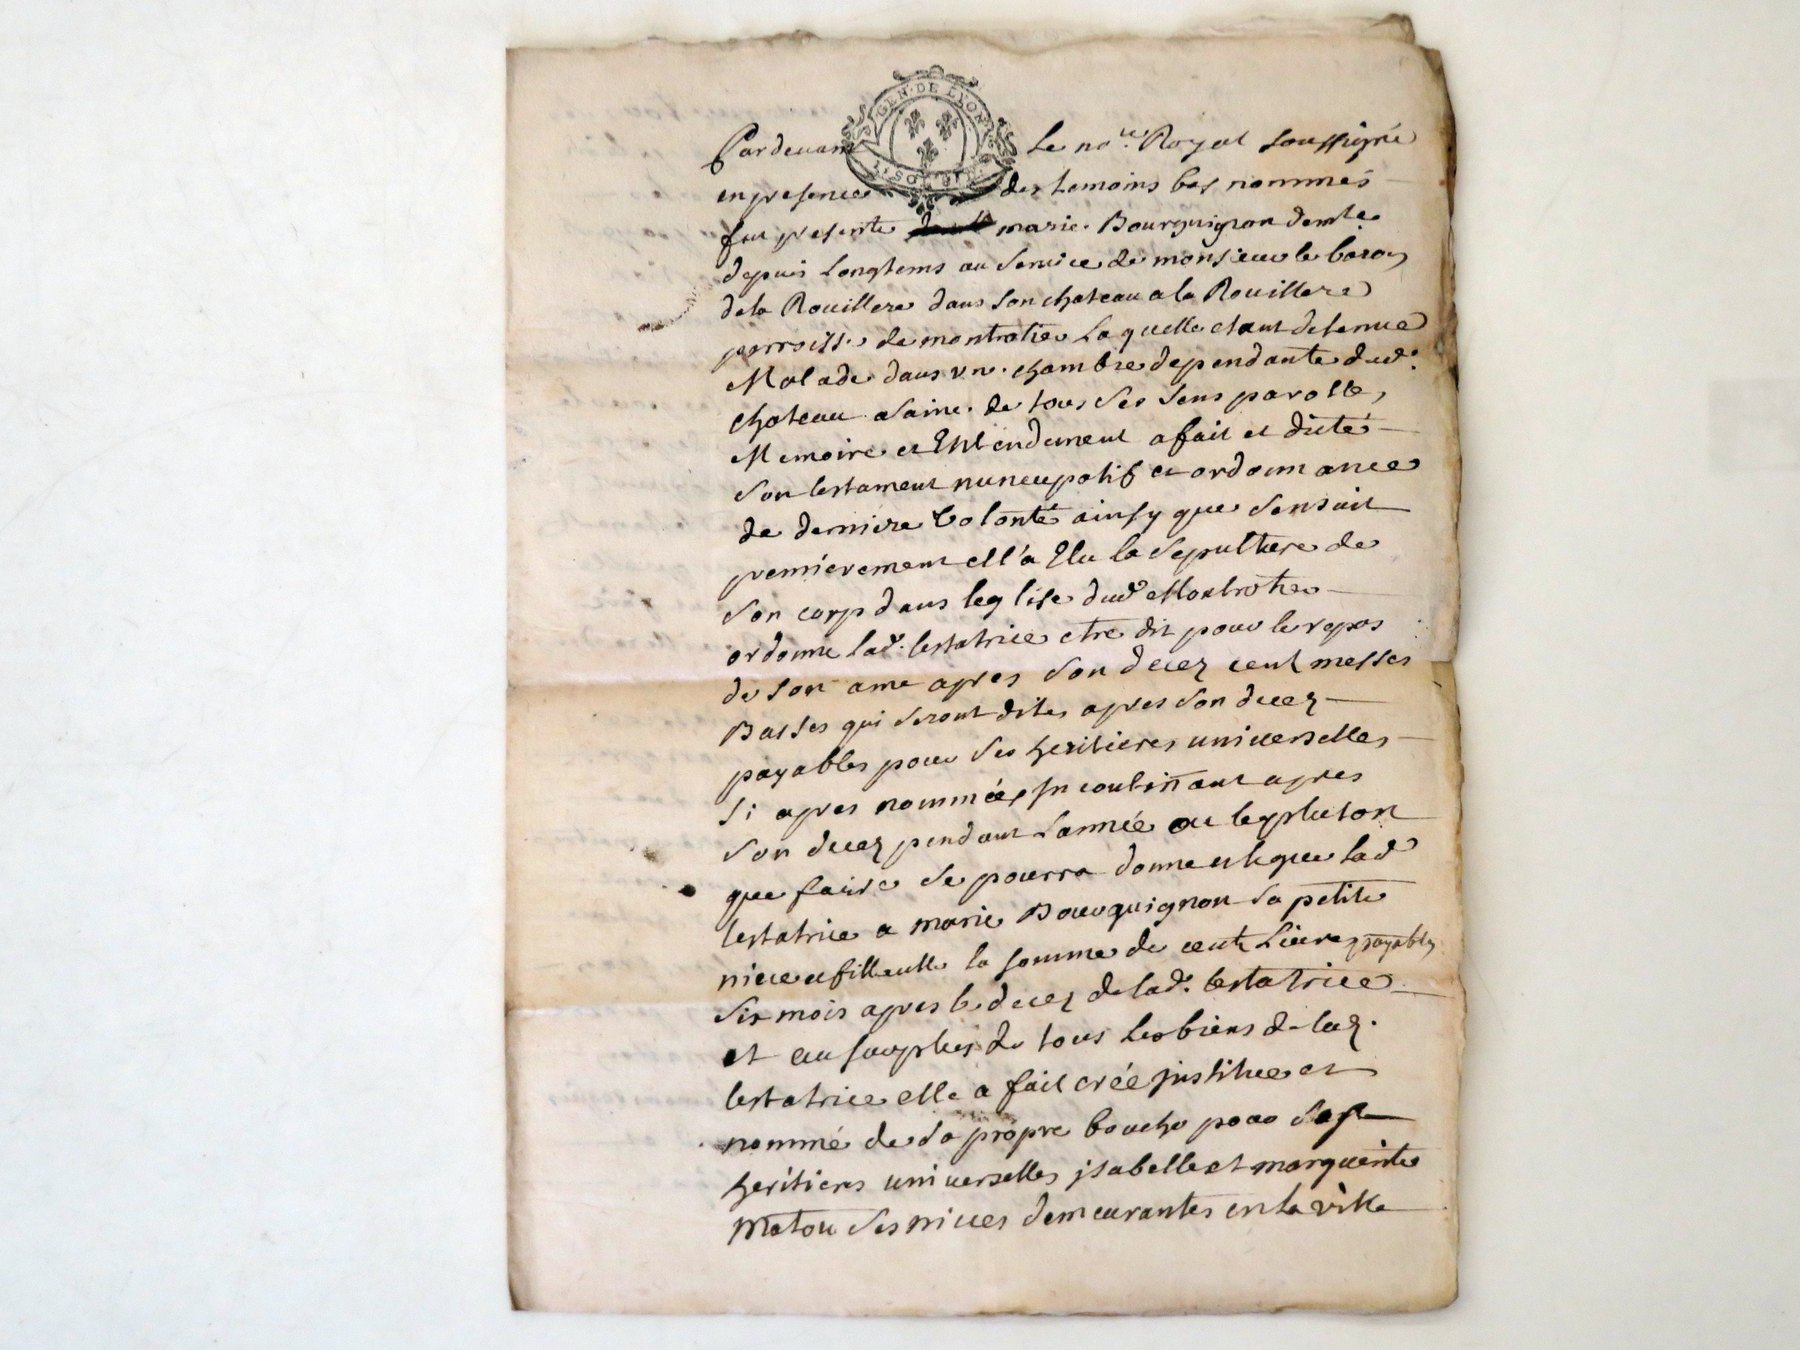 GEN · DE LYON
Pardevant Le no.re Royal soussigné
en presence des temoins bas nommés
fut presente marie Bourguignon demte
depuis Longtems au service de monsieur le baron
de la Rouillere dans son chateau a la Rouillere
parroisse de montrotier Laquelle etant detenue
Malade dans une chambre dependante dud.
chateau saine de tous ses sens parolle,
Memoire et Entendement a fait et dicté
son testament nuncupatif et ordonnance
de derniere volonté ainsy que sensuit
premierement ell'a Elu la sepulture de
son corp dans leglise dud Montrotier
ordonne lad. testatrice etre dit pour le repos
de son ame apres son decez cent messes
Basses qui seront dites apres son decez
payables pour ses heritieres universelles
si apres nommées incontinant apres
son decez pendant Lannée ou le plutot
que faire se pourra donne et legue lad
testatrice a marie Bourguignon sa petite
niece et filleulle la somme de cent Livres payables
six mois apres le decez de lad. testatrice
et au surplus de tous les biens de lad.
testatrice elle a fait creé justitue et
nommé de sa propre bouche pour ses
heritieres universelles jsabelle et marguerite
Matou ses nieces demeurantes en la ville